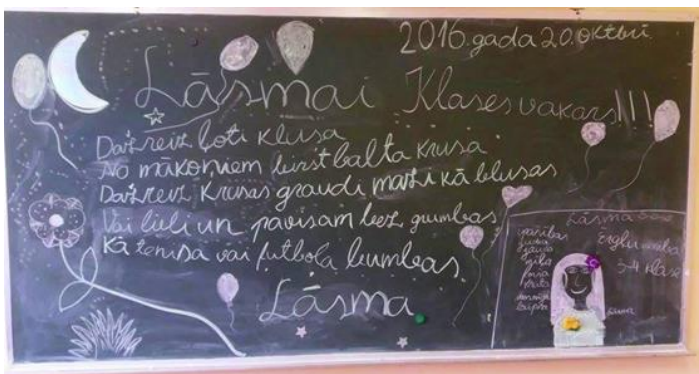 2016. gada 20. oktbrī.
Lāsmai Klases vakars!!!
Dažreiz ļoti klusa
No mākoņiem birst balta krusa.
Dažreiz Krusas graudi mazi kā blusas
Vai lieli un pavisam bez grumbas
Kā tenisa vai futbola bumbas.
Lāsma
Lāsma
3-4 klase